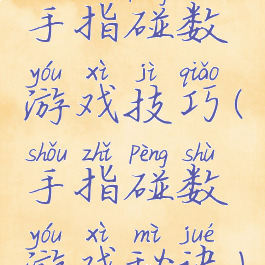 手指碰数
yóu xì jì qiǎo
游戏技巧(
shǒu zhǐ Pèng shù
手指碰数
yóu xì mì jué
游戏秘诀)